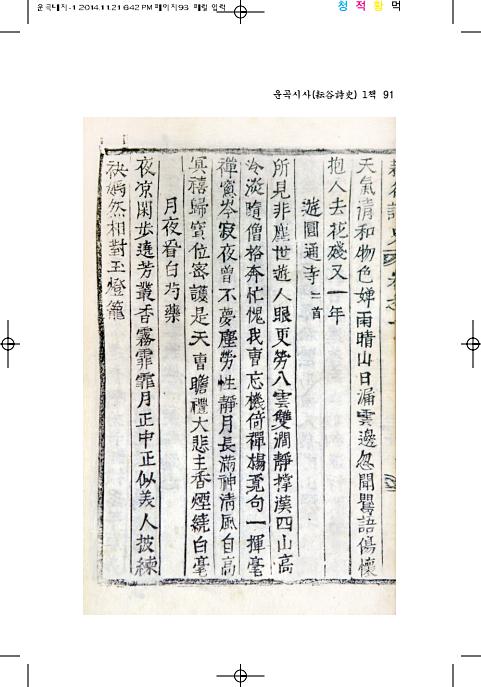 운곡내지-1 2014.11.21 6:42 PM 페이지93 매일 입력
청 적 황 먹
운곡시사(耘谷詩史) 1책 91
天氣清和物色嬋雨晴山日漏雲邊忽聞鸎語傷懷
抱人去花殘又一年
遊圓通寺 二首
所見非塵世遊人眼更勞入雲雙澗靜撑漢四山高
冷淡隨僧格奔忙愧我曹忘機倚禪榻覓句一揮毫
禪窓岑寂夜曾不夢塵勞性靜月長滿神清風自高
冥禧歸寶位密護是天曹瞻禮大悲主香煙繞白毫
月夜看白芍藥
夜凉閑步遶芳叢香霧霏霏月正中正似美人披練
袂嫣然相對玉燈籠